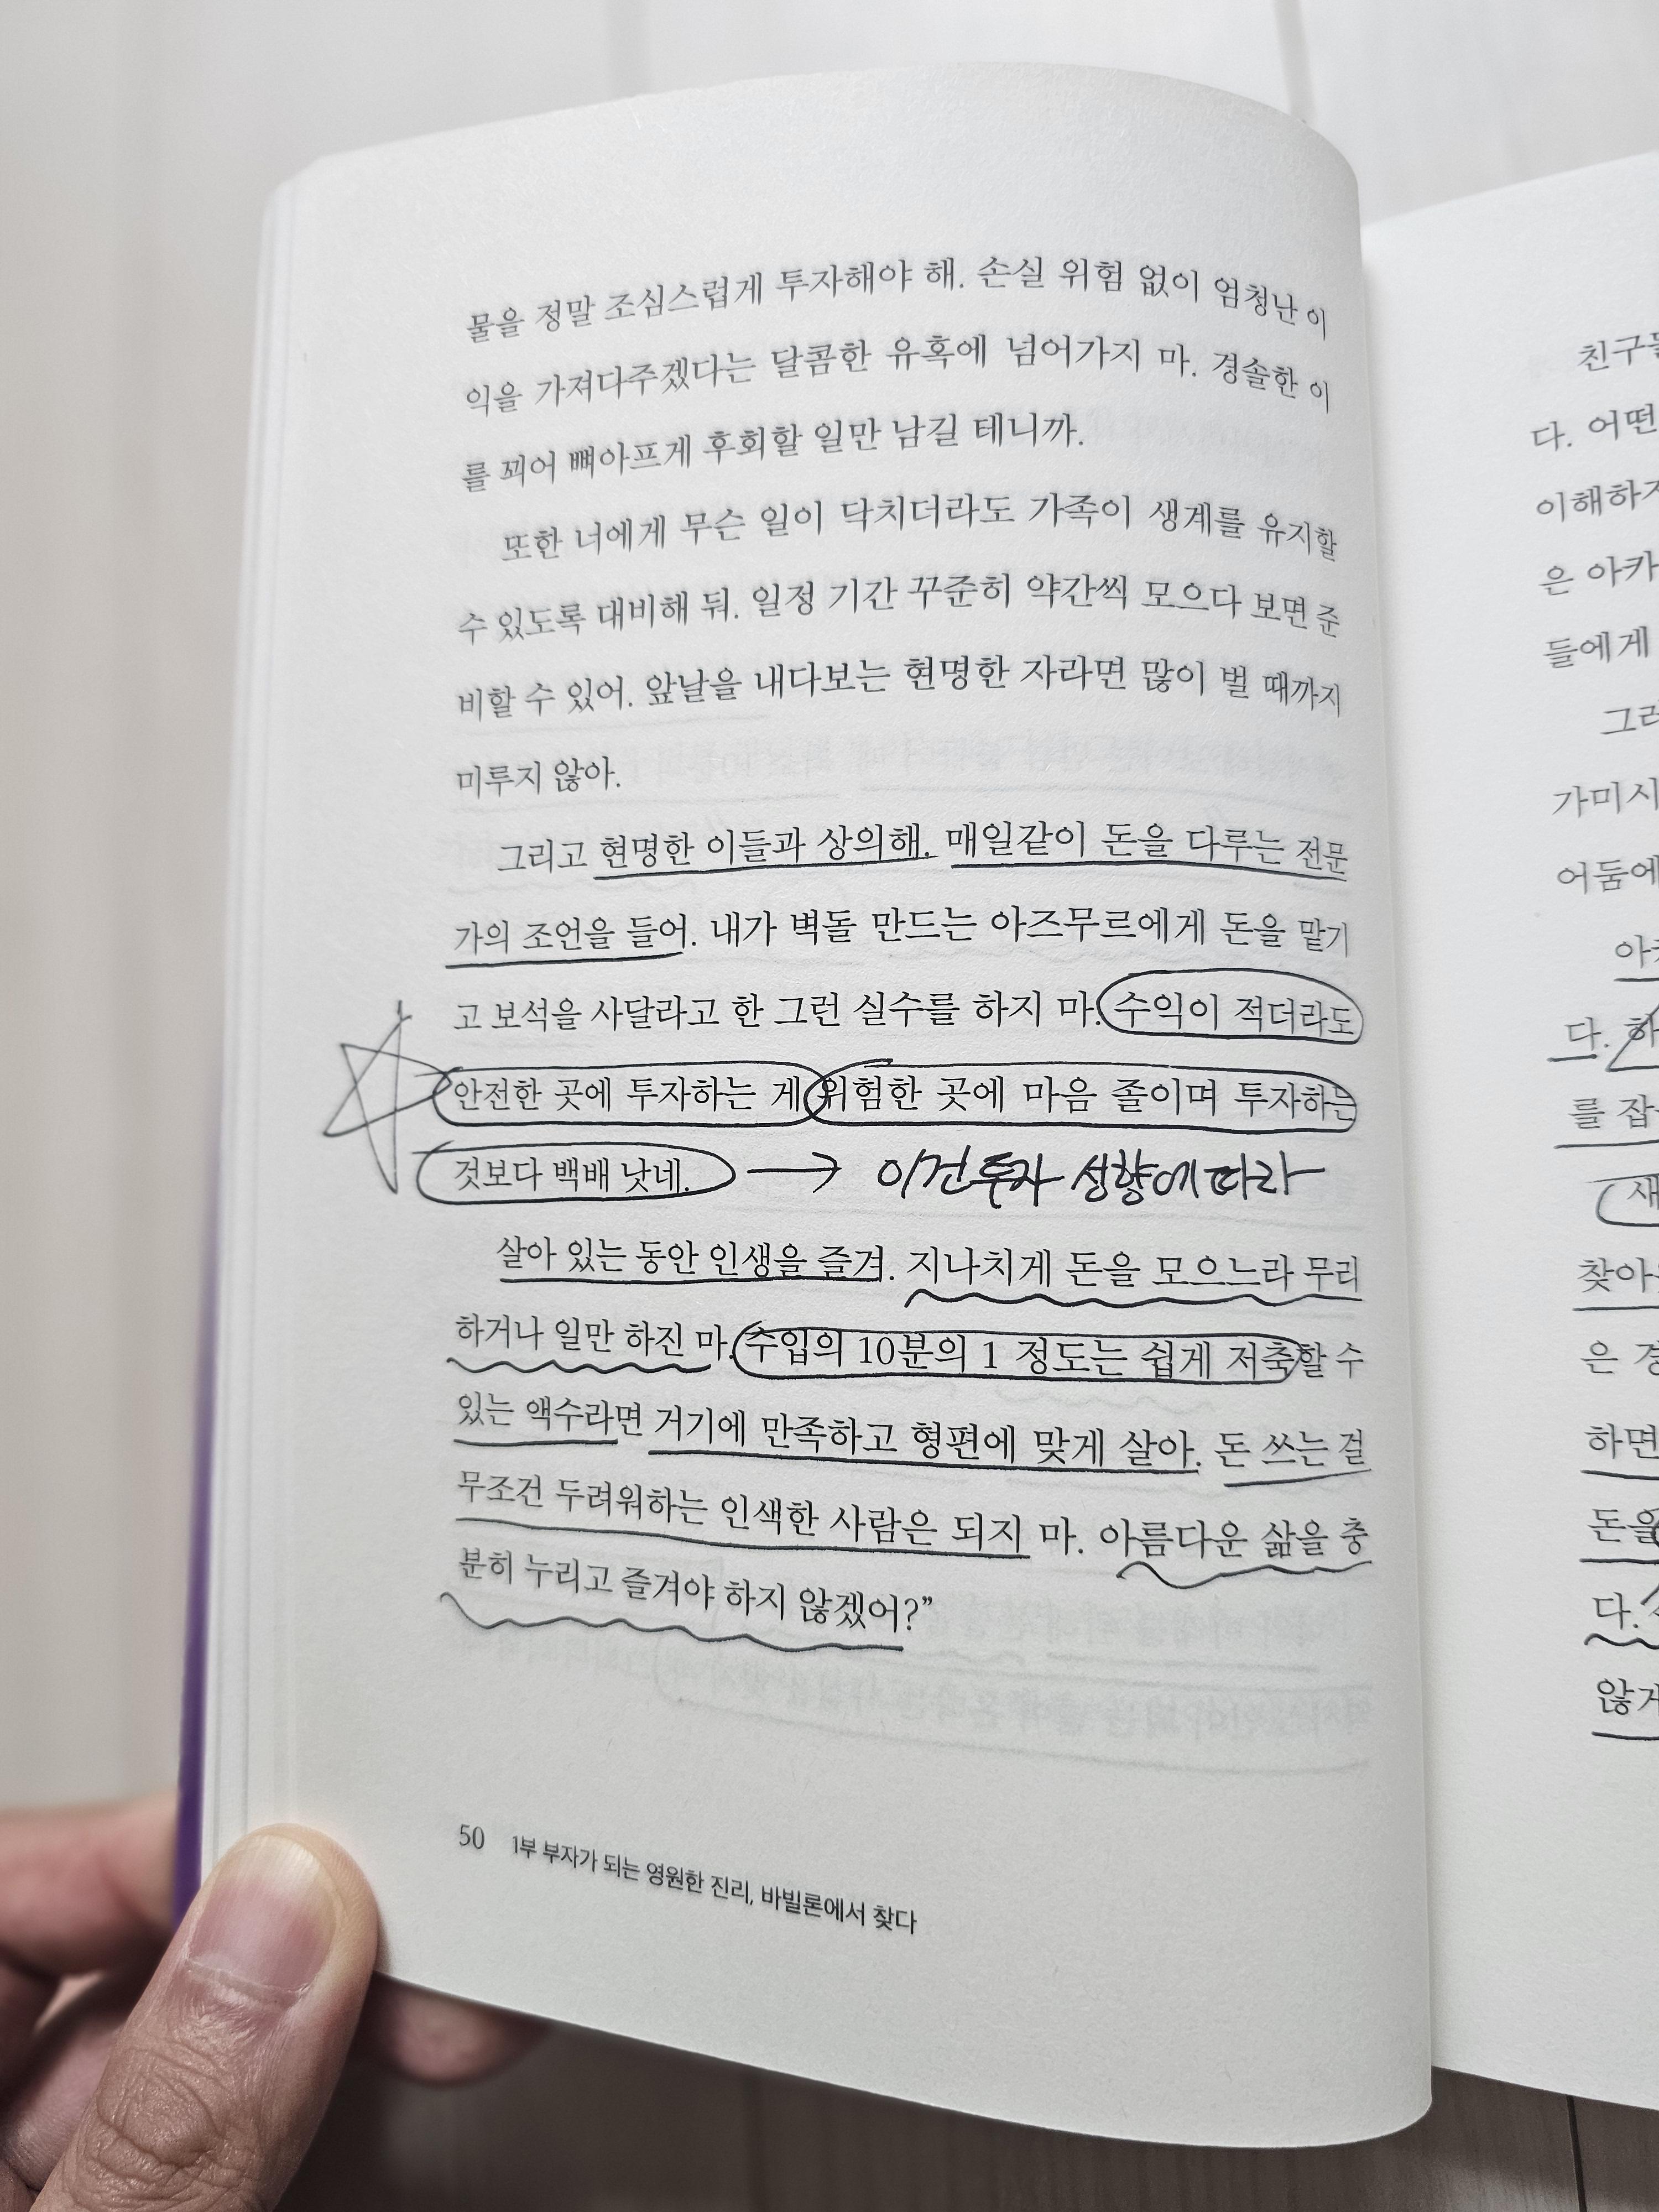 물을 정말 조심스럽게 투자해야 해. 손실 위험 없이 엄청난 이
익을 가져다주겠다는 달콤한 유혹에 넘어가지 마. 경솔한 이
를 꾀어 뼈아프게 후회할 일만 남길 테니까.
또한 너에게 무슨 일이 닥치더라도 가족이 생계를 유지할
수 있도록 대비해 둬. 일정 기간 꾸준히 약간씩 모으다 보면 준
비할 수 있어. 앞날을 내다보는 현명한 자라면 많이 벌 때까지
미루지 않아.
그리고 현명한 이들과 상의해. 매일같이 돈을 다루는 전문
가의 조언을 들어. 내가 벽돌 만드는 아즈무르에게 돈을 맡기
고 보석을 사달라고 한 그런 실수를 하지 마. 수익이 적더라도
안전한 곳에 투자하는 게 위험한 곳에 마음 졸이며 투자하는
것보다 백배 낫네. → 이건 투자 성향에 따라
살아 있는 동안 인생을 즐겨. 지나치게 돈을 모으느라 무리
하거나 일만 하진 마. 수입의 10분의 1 정도는 쉽게 저축할 수
있는 액수라면 거기에 만족하고 형편에 맞게 살아. 돈 쓰는 걸
무조건 두려워하는 인색한 사람은 되지 마. 아름다운 삶을 충
분히 누리고 즐겨야 하지 않겠어?”
50 1부 부자가 되는 영원한 진리, 바빌론에서 찾다
다. 어떤
은 아카
들에게
가미시
어둠에
다. 하
를 잡
새
찾아
은
하면
돈을
다.
않게